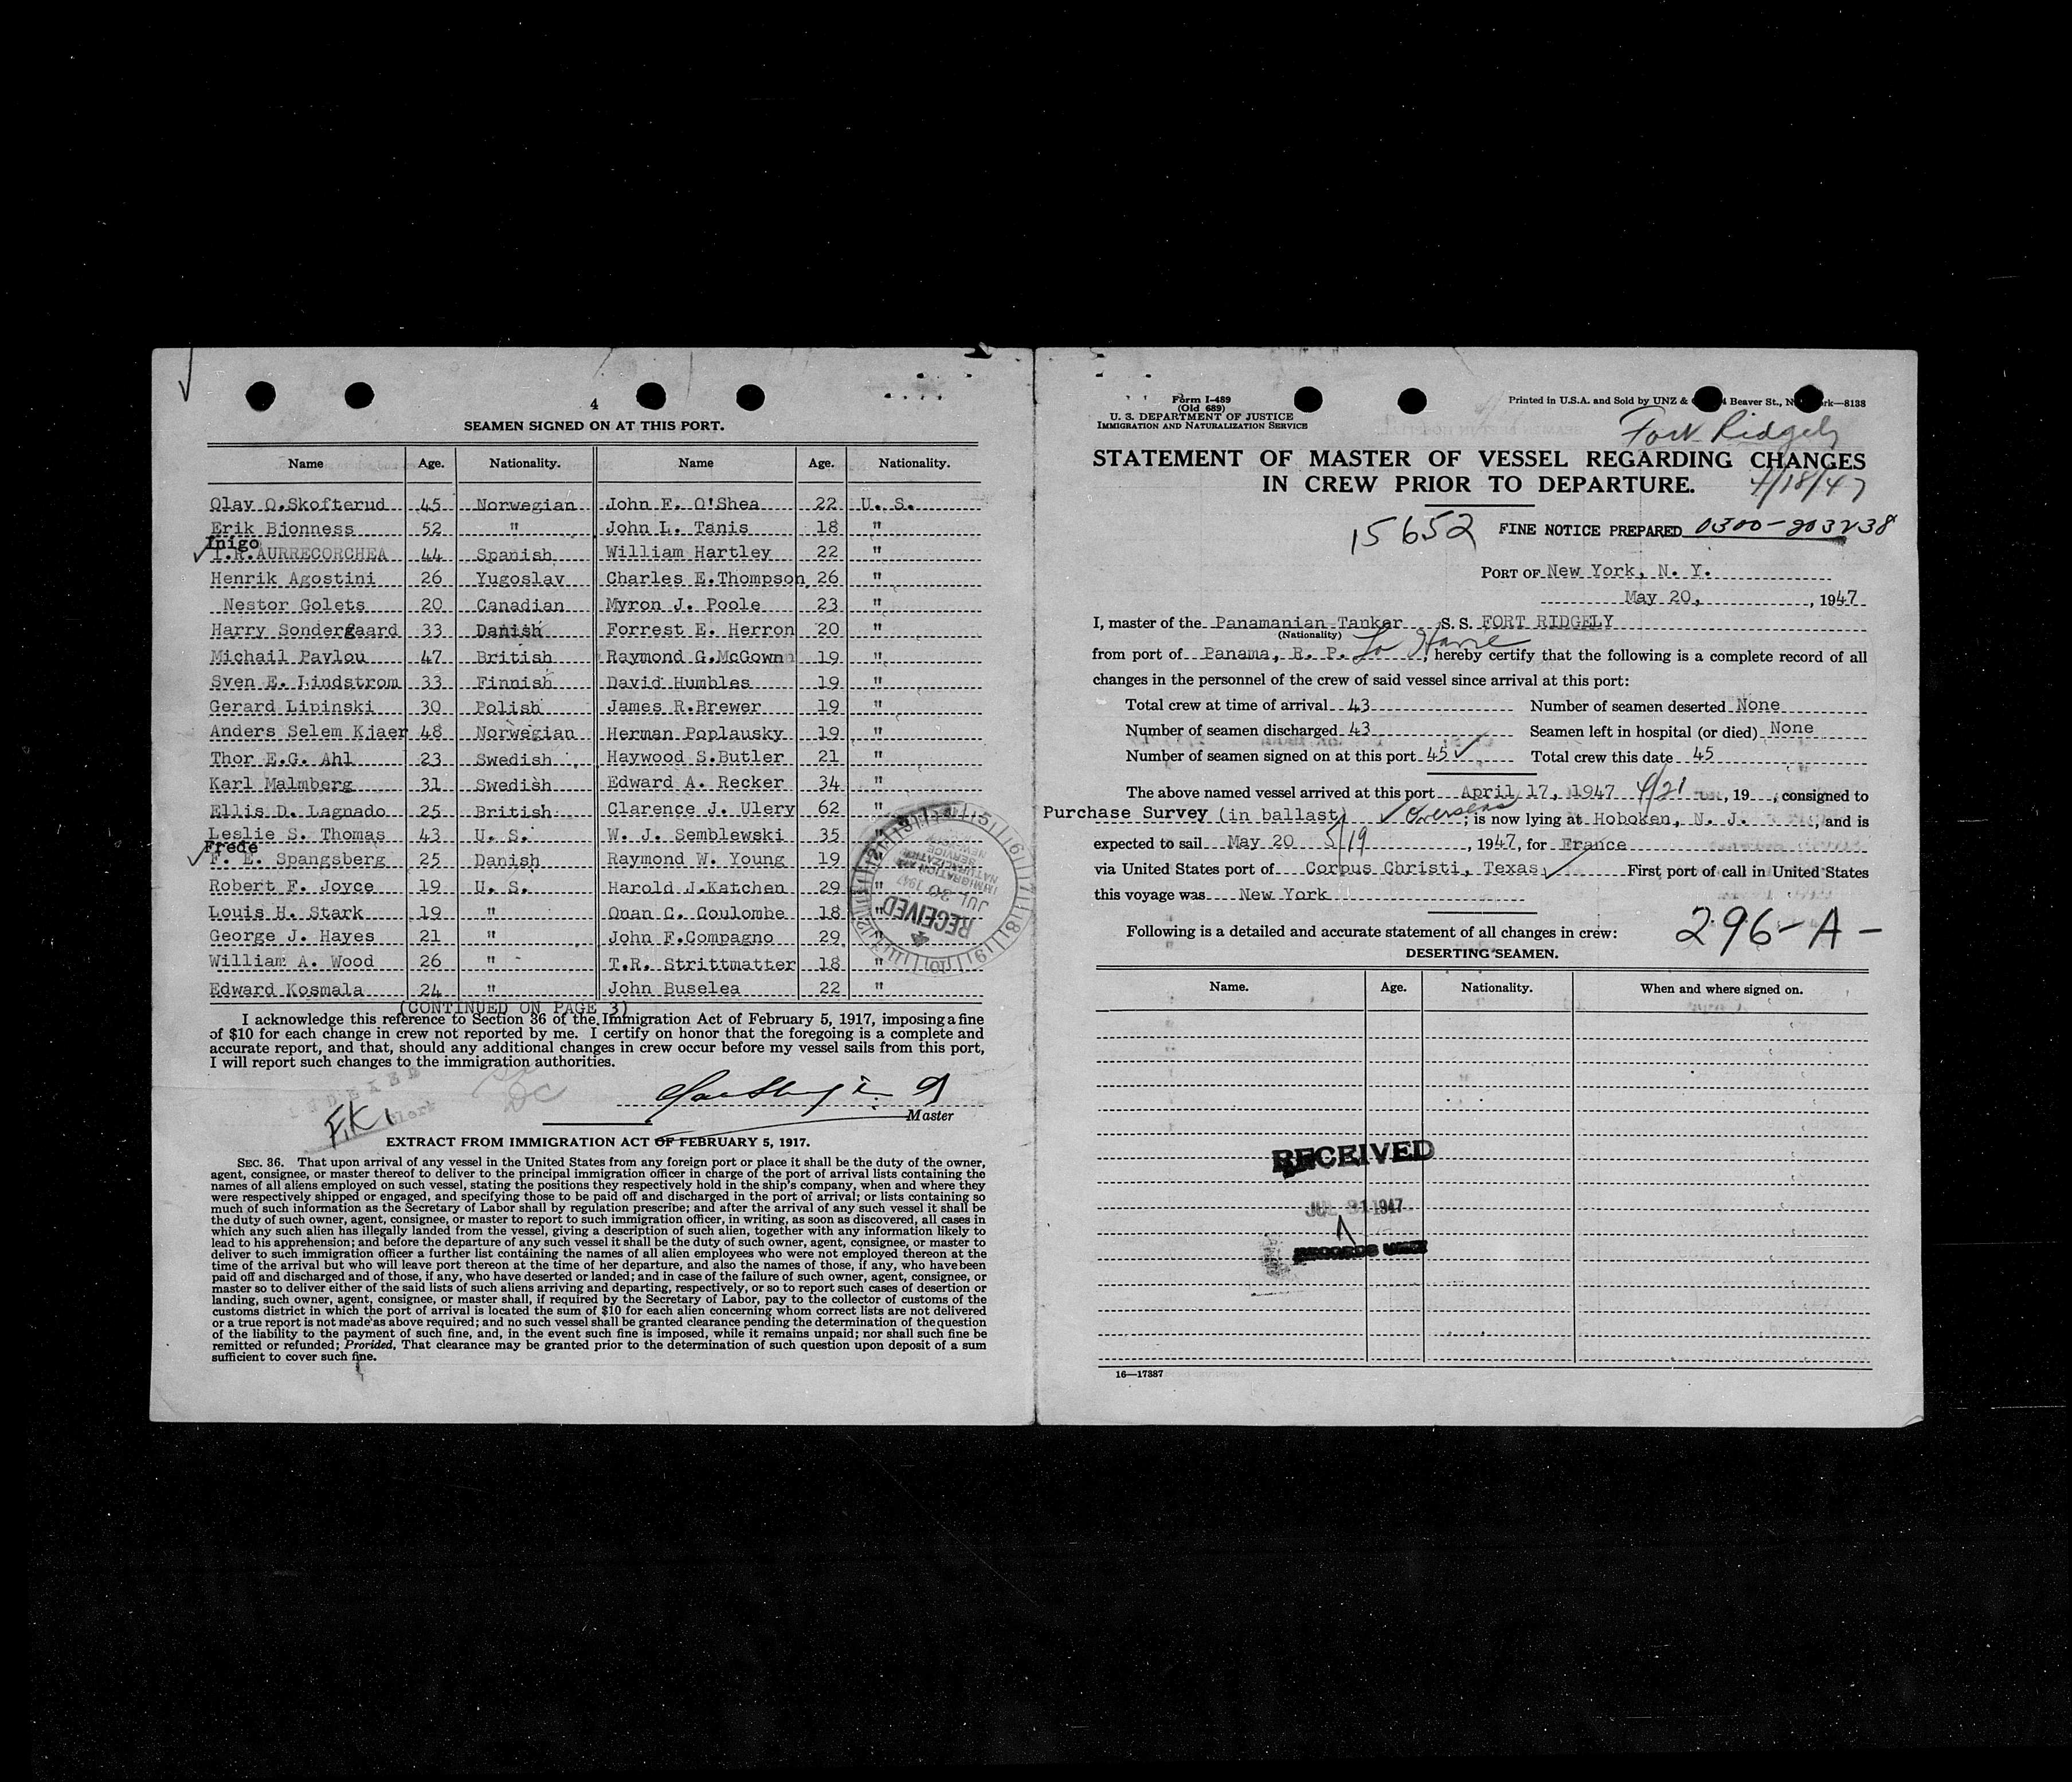 4
SEAMEN SIGNED ON AT THIS PORT.
Name Age. Nationality. Name Age. Nationality.
Olav O.Skofterud 45 Norwegian John E. O'Shea 22 U. S.
Erik Bjonness 52 " John L. Tanis 18 "
Inigo
I.R.AURRECORCHEA 44 Spanish William Hartley 22 "
Henrik Agostini 26 Yugoslav Charles E.Thompson 26 "
Nestor Golets 20 Canadian Myron J. Poole 23 "
Harry Sondergaard 33 Danish Forrest E. Herron 20 "
Michail Pavlou 47 British Raymond G.McGown 19 "
Sven E. Lindstrom 33 Finnish David Humbles 19 "
Gerard Lipinski 30 Polish James R.Brewer 19 "
Anders Selem Kjaer 48 Norwegian Herman Poplausky 19 "
Thor E.G. Ahl 23 Swedish Haywood S.Butler 21 "
Karl Malmberg 31 Swedish Edward A. Recker 34 "
Ellis D. Lagnado 25 British Clarence J. Ulery 62 "
Leslie S. Thomas 43 U. S. W. J. Semblewski 35 "
Frede
F. E. Spangsberg 25 Danish Raymond W. Young 19 "
Robert F. Joyce 19 U. S. Harold J.Katchen 29 "
Louis H. Stark 19 " Onan C. Coulombe 18 "
George J. Hayes 21 " John F.Compagno 29 "
William A. Wood 26 " T.R. Strittmatter 18 "
Edward Kosmala 24 " John Buselea 22 "
(CONTINUED ON PAGE 3)
I acknowledge this reference to Section 36 of the Immigration Act of February 5, 1917, imposing a fine
of $10 for each change in crew not reported by me. I certify on honor that the foregoing is a complete and
accurate report, and that, should any additional changes in crew occur before my vessel sails from this port,
I will report such changes to the immigration authorities.
INDEXED
F.K. Clerk
Master
RECEIVED
JUL 30 1947
IMMIGRATION
NATURALIZATION
SERVICE
EXTRACT FROM IMMIGRATION ACT OF FEBRUARY 5, 1917.
SEC. 36. That upon arrival of any vessel in the United States from any foreign port or place it shall be the duty of the owner,
agent, consignee, or master thereof to deliver to the principal immigration officer in charge of the port of arrival lists containing the
names of all aliens employed on such vessel, stating the positions they respectively hold in the ship's company, when and where they
were respectively shipped or engaged, and specifying those to be paid off and discharged in the port of arrival; or lists containing so
much of such information as the Secretary of Labor shall by regulation prescribe; and after the arrival of any such vessel it shall be
the duty of such owner, agent, consignee, or master to report to such immigration officer, in writing, as soon as discovered, all cases in
which any such alien has illegally landed from the vessel, giving a description of such alien, together with any information likely to
lead to his apprehension; and before the departure of any such vessel it shall be the duty of such owner, agent, consignee, or master to
deliver to such immigration officer a further list containing the names of all alien employees who were not employed thereon at the
time of the arrival but who will leave port thereon at the time of her departure, and also the names of those, if any, who have been
paid off and discharged and of those, if any, who have deserted or landed; and in case of the failure of such owner, agent, consignee, or
master so to deliver either of the said lists of such aliens arriving and departing, respectively, or so to report such cases of desertion or
landing, such owner, agent, consignee, or master shall, if required by the Secretary of Labor, pay to the collector of customs of the
customs district in which the port of arrival is located the sum of $10 for each alien concerning whom correct lists are not delivered
or a true report is not made as above required; and no such vessel shall be granted clearance pending the determination of the question
of the liability to the payment of such fine, and, in the event such fine is imposed, while it remains unpaid; nor shall such fine be
remitted or refunded; Provided, That clearance may be granted prior to the determination of such question upon deposit of a sum
sufficient to cover such fine.
Form I-489
(Old 689)
U. S. DEPARTMENT OF JUSTICE
IMMIGRATION AND NATURALIZATION SERVICE
Printed in U.S.A. and Sold by UNZ & Beaver St., N rk—8138
Fort Ridgely
STATEMENT OF MASTER OF VESSEL REGARDING CHANGES
IN CREW PRIOR TO DEPARTURE.
4/18/47
15652 FINE NOTICE PREPARED 0300-203238
PORT OF New York, N. Y.
May 20, , 1947
I, master of the Panamanian Tanker S. S. FORT RIDGELY
(Nationality)
from port of Panama, R. P. Le Havre, hereby certify that the following is a complete record of all
changes in the personnel of the crew of said vessel since arrival at this port:
Total crew at time of arrival 43 Number of seamen deserted None
Number of seamen discharged 43 Seamen left in hospital (or died) None
Number of seamen signed on at this port 45 ✓ Total crew this date 45
The above named vessel arrived at this port April 17, 1947 4/21, 19 , consigned to
Purchase Survey (in ballast) ✓ Overseas; is now lying at Hoboken, N. J. , and is
expected to sail May 20 5/19, 1947, for France
via United States port of Corpus Christi, Texas ✓ First port of call in United States
this voyage was New York
Following is a detailed and accurate statement of all changes in crew: 296-A-
DESERTING SEAMEN.
Name. Age. Nationality. When and where signed on.
RECEIVED
JUL 31 1947
A
RECORDS UNIT
16—17387